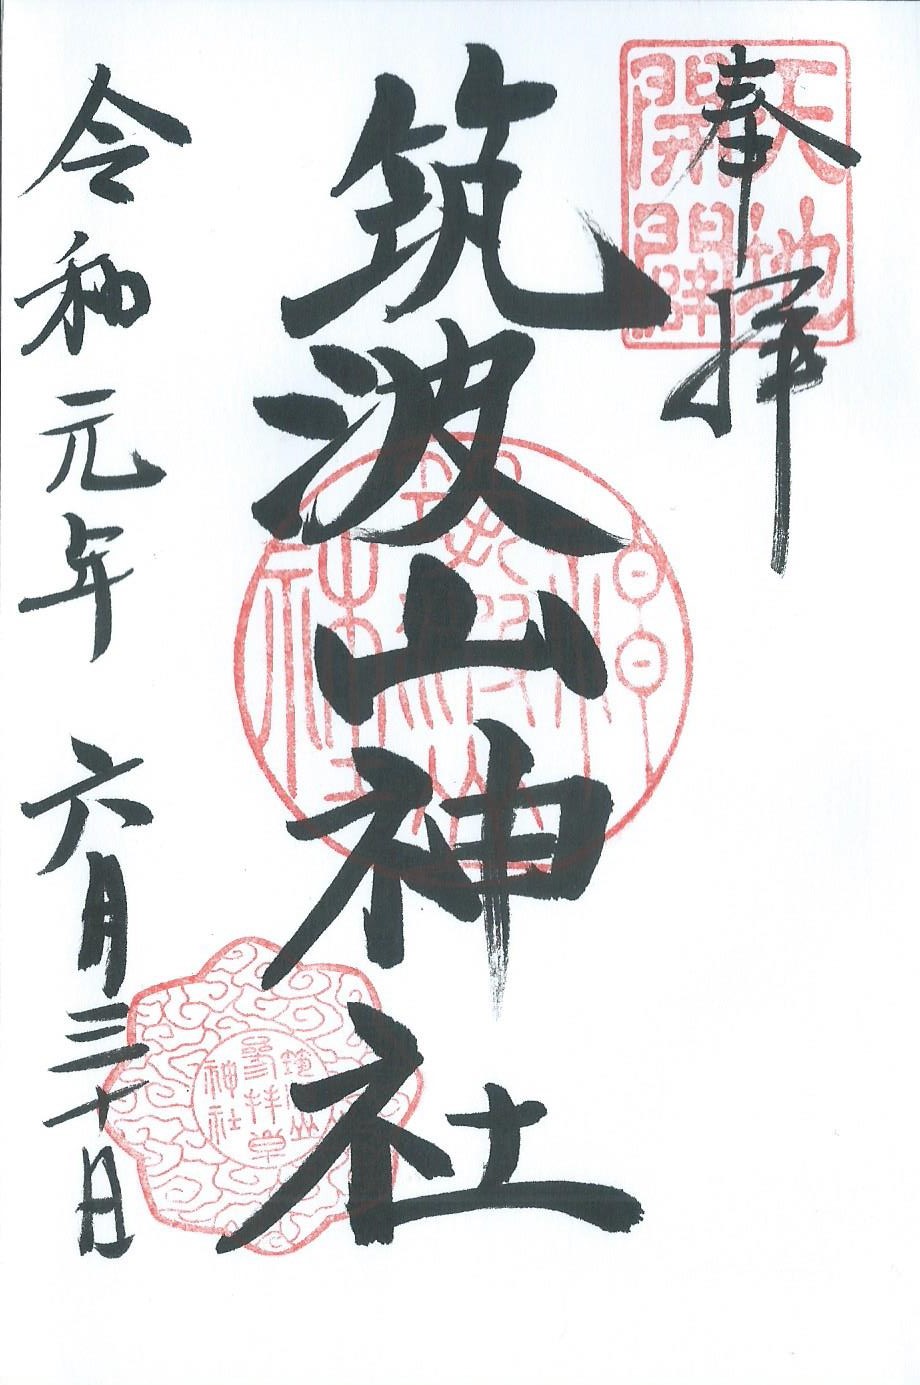 奉拝
天地
開闢
筑波山神社
筑波山
参拝章
神社
令和元年 六月三十日